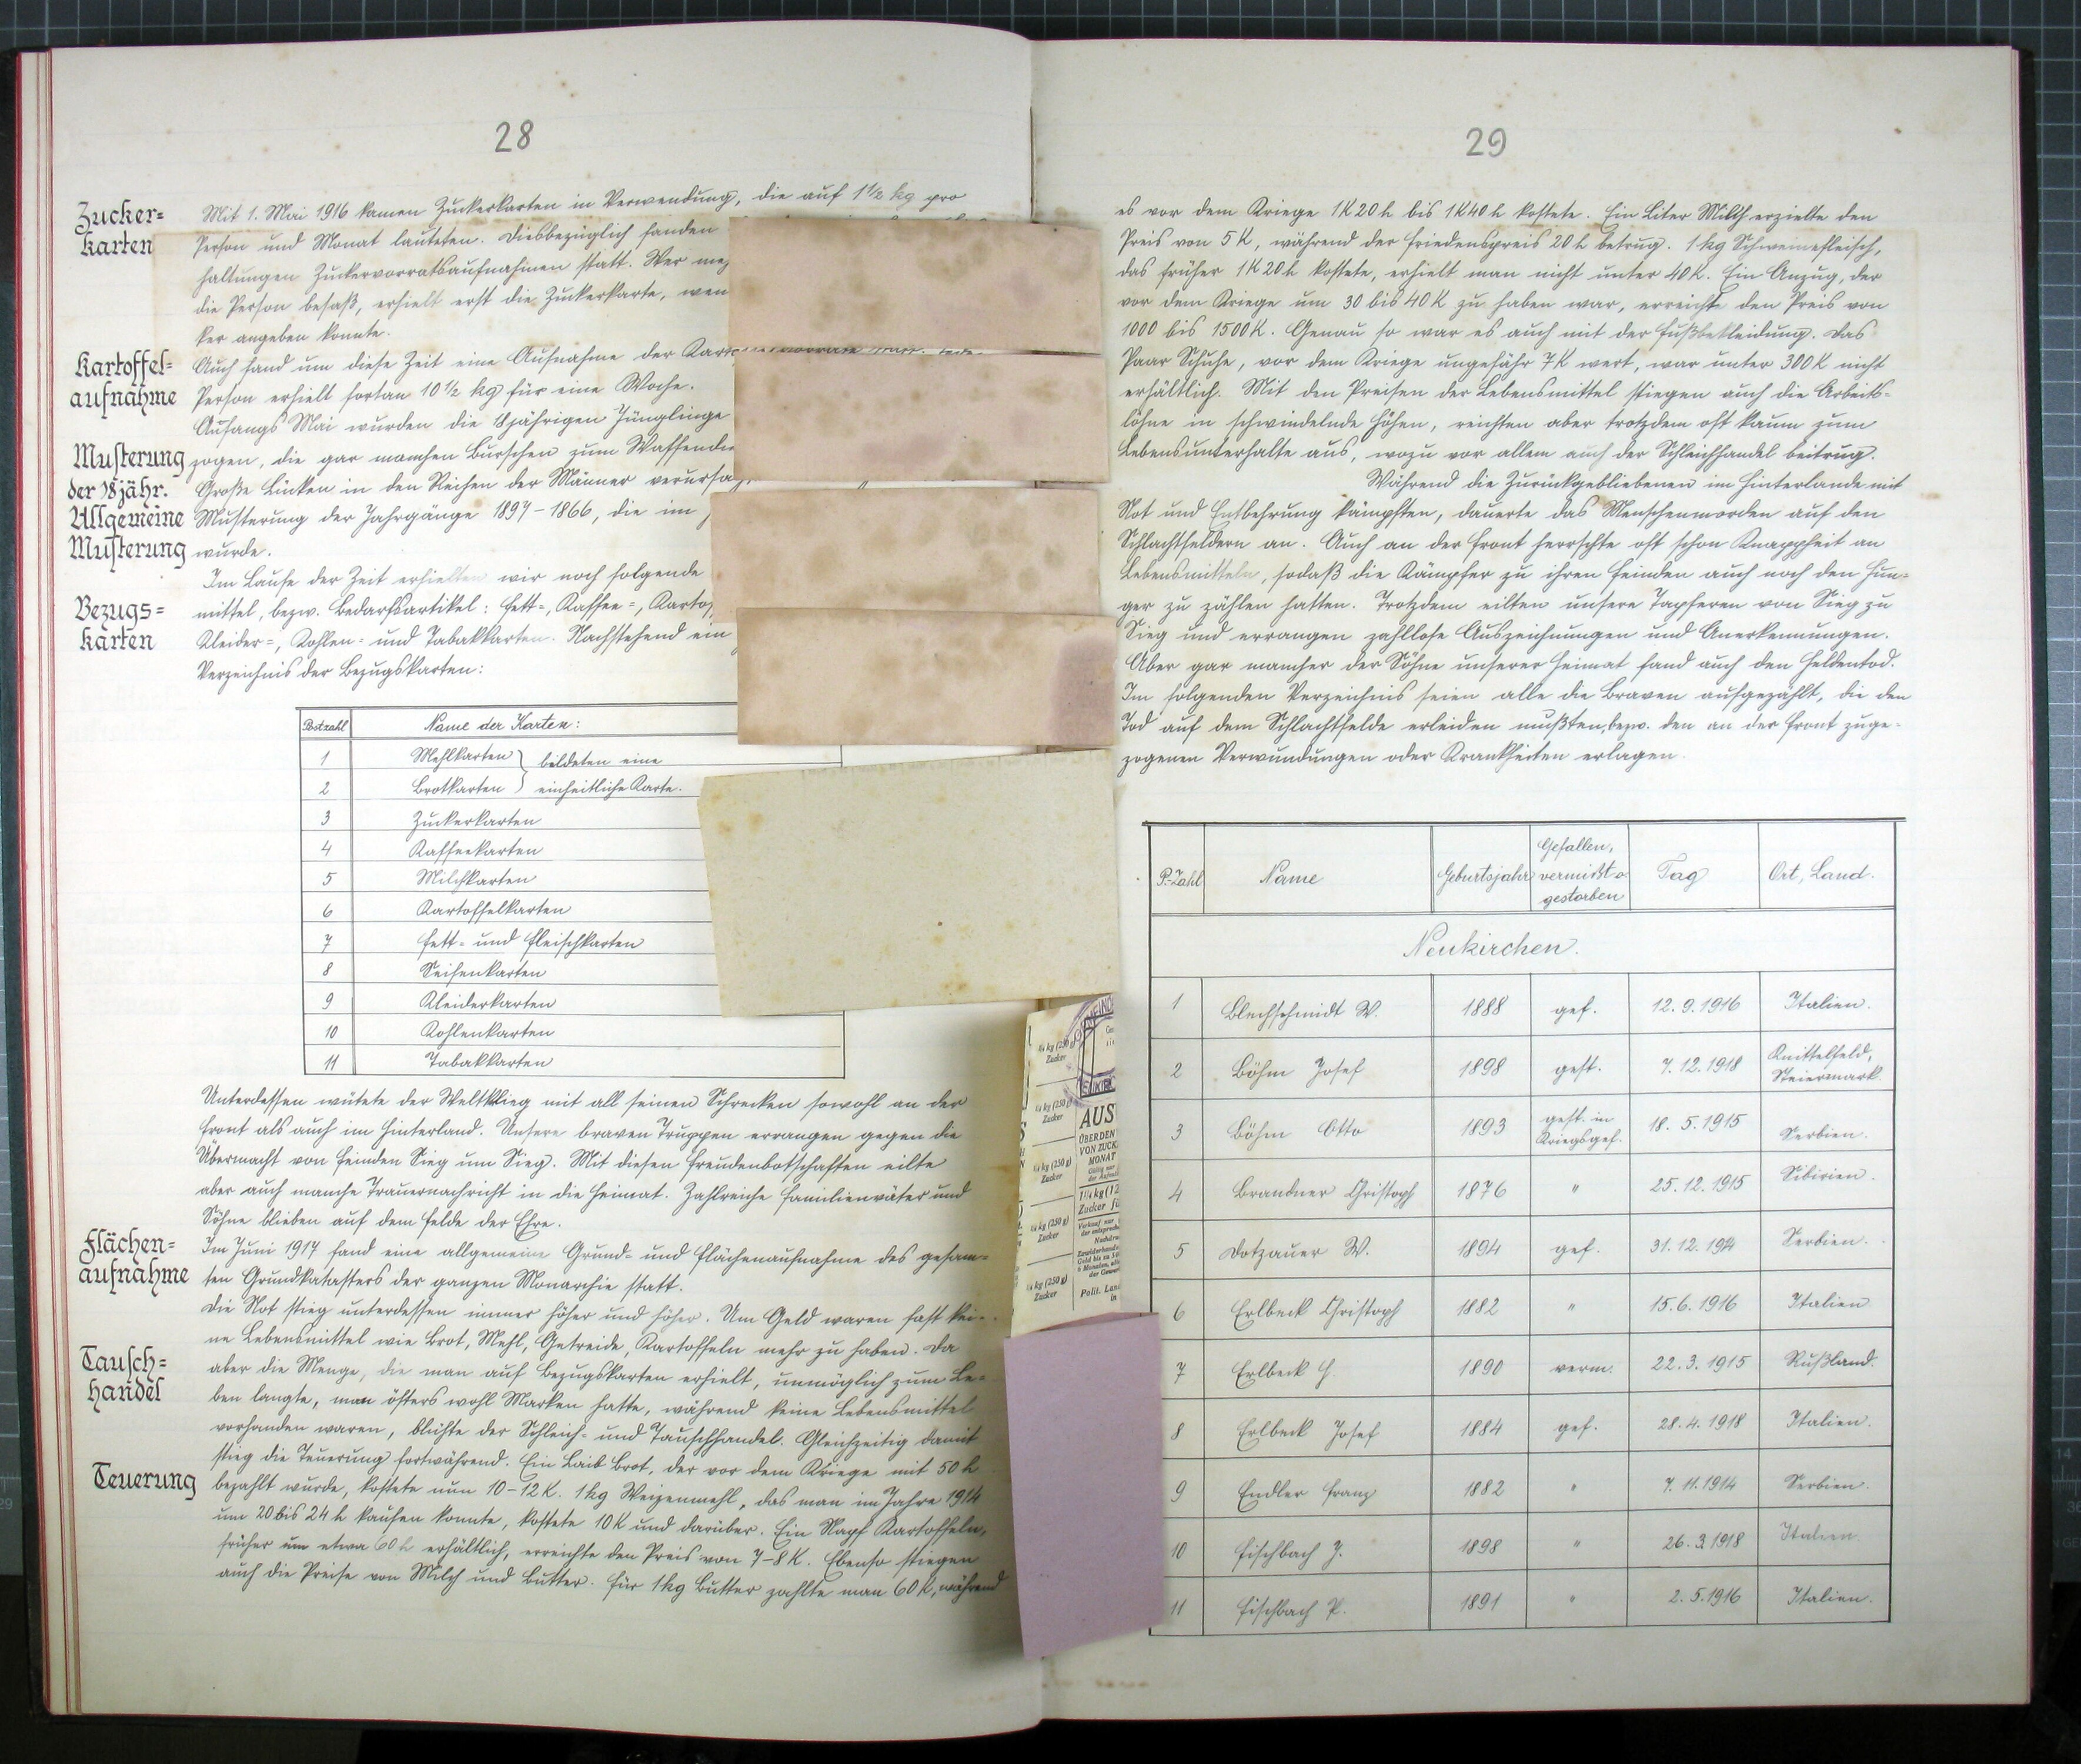 28
Zucker-
karten
Mit 1. Mai 1916 kamen Zuckerkarten in Verwendung, die auf 1½ kg pro
Person und Monat lauteten. Diesbezüglich fanden
haltungen Zuckervorratsaufnahmen statt. Wer
die Person besaß, erhielt erst die Zuckerkarte, wen
ker angeben konnte.
Kartoffel-
aufnahme
Auch fand um diese Zeit eine Aufnahme der
Person erhielt fortan 10½ kg für eine Woche.
Anfangs Mai wurden die 18jährigen Jünglinge
Musterung
der 18jähr.
zogen, die gar manchen Burschen zum
Große Lücken in den Reihen der Männer
Allgemeine
Musterung
Musterung der Jahrgänge 1897-1866, die im
wurde.
Im Laufe der Zeit erhielten wir noch folgende
Bezugs=
karten
mittel, bezw. Bedarfsartikel: Fett=, Kaffee=,
Kleider=, Kohlen= und Tabakkarten. Nachstehend ein
Verzeichnis der Bezugskarten:
Postzahl Name der Karten:
1 Mehlkarten } bildeten eine
2 Brotkarten } einheitliche Karte.
3 Zuckerkarten
4 Kaffeekarten
5 Milchkarten
6 Kartoffelkarten
7 Fett= und Fleischkarten
8 Seifenkarten
9 Kleiderkarten
10 Kohlenkarten
11 Tabakkarten
Unterdessen wütete der Weltkrieg mit all seinen Schrecken sowohl an der
Front als auch im Hinterland. Unsere braven Truppen errangen gegen die
Übermacht von Feinden Sieg um Sieg. Mit diesen Freudenbotschaften eilte
aber auch manche Trauernachricht in die Heimat. Zahlreiche Familienväter und
Söhne blieben auf dem Felde der Ehre.
Flächen=
aufnahme
Im Juni 1917 fand eine allgemeine Grund= und Flächenaufnahme des gesam=
ten Grundkatasters der ganzen Monarchie statt.
Die Not stieg unterdessen immer höher und höher. Um Geld waren fast kei=
ne Lebensmittel wie Brot, Mehl, Getreide, Kartoffeln mehr zu haben. Da
Tausch=
handel
aber die Menge, die man auf Bezugskarten erhielt, unmöglich zum Le=
ben langte, man öfters wohl Marken hatte, während keine Lebensmittel
vorhanden waren, blühte der Schleich= und Tauschhandel. Gleichzeitig damit
stieg die Teuerung fortwährend. Ein Laib Brot, der vor dem Kriege mit 50 h
Teuerung
bezahlt wurde, kostete nun 10-12 K. 1 kg Weizenmehl, das man im Jahre 1914
um 20 bis 24 h kaufen konnte, kostete 10 K und darüber. Ein Napf Kartoffeln,
früher um etwa 60 h erhältlich, erreichte den Preis von 7-8 K. Ebenso stiegen
auch die Preise von Milch und Butter. Für 1 kg Butter zahlte man 60 K, während
¼ kg (250 g)
Zucker
¼ kg (250 g)
Zucker
¼ kg (250 g)
Zucker
¼ kg (250 g)
Zucker
¼ kg (250 g)
Zucker
AUS
ÜBER DEN
VON ZUCK
MONAT
1¼ kg (12
Zucker fü
29
es vor dem Kriege 1 K 20 h bis 1 K 40 h kostete. Ein Liter Milch erzielte den
Preis von 5 K, während der Friedenspreis 20 h betrug. 1 kg Schweinefleisch,
das früher 1 K 20 h kostete, erhielt man nicht unter 40 K. Ein Anzug, der
vor dem Kriege um 30 bis 40 K zu haben war, erreichte den Preis von
1000 bis 1500 K. Genau so war es auch mit der Fußbekleidung. Das
Paar Schuhe, vor dem Kriege ungefähr 7 K wert, war unter 300 K nicht
erhältlich. Mit den Preisen der Lebensmittel stiegen auch die Arbeits=
löhne in schwindelnde Höhen, reichten aber trotzdem oft kaum zum
Lebensunterhalte aus, wozu vor allem auch der Schleichhandel beitrug.
Während die Zurückgebliebenen im Hinterlande mit
Not und Entbehrung kämpften, dauerte das Menschenmorden auf den
Schlachtfeldern an. Auch an der Front herrschte oft schon Knappheit an
Lebensmitteln, sodaß die Kämpfer zu ihren Feinden auch noch den Hun=
ger zu zählen hatten. Trotzdem eilten unsere Tapferen von Sieg zu
Sieg und errangen zahllose Auszeichnungen und Anerkennungen.
Aber gar mancher der Söhne unserer Heimat fand auch den Heldentod.
Im folgenden Verzeichnis seien alle die Braven aufgezählt, die den
Tod auf dem Schlachtfelde erleiden mußten, bezw. den an der Front zuge=
zogenen Verwundungen oder Krankheiten erlagen.
P.-Zahl Name Geburtsjahr Gefallen, vermißt o. gestorben Tag Ort, Land.
Neukirchen.
1 Blechschmidt W. 1888 gef. 12.9.1916 Italien.
2 Böhm Josef 1898 gest. 7.12.1918 Knittelfeld, Steiermark.
3 Böhm Otto 1893 gest. in Kriegsgef. 18.5.1915 Serbien.
4 Brandner Christoph 1876 " 25.12.1915 Sibirien.
5 Dotzauer W. 1894 gef. 31.12.1914 Serbien.
6 Erlbeck Christoph 1882 " 15.6.1916 Italien
7 Erlbeck H. 1890 verm. 22.3.1915 Rußland.
8 Erlbeck Josef 1884 gef. 28.4.1918 Italien.
9 Endler Franz 1882 " 7.11.1914 Serbien.
10 Fischbach J. 1898 " 26.3.1918 Italien.
11 Fischbach P. 1891 " 2.5.1916 Italien.